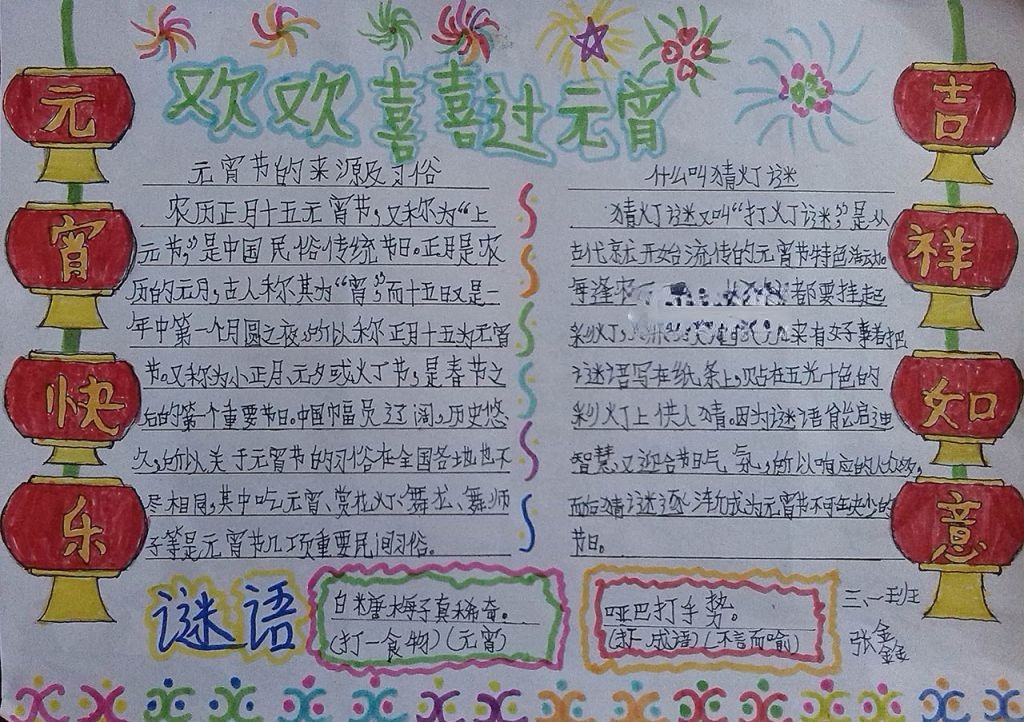 欢欢喜喜过元宵
元
宵
快
乐
吉
祥
如
意
元宵节的来源及习俗
农历正月十五元宵节,又称为“上
元节”,是中国民俗传统节日。正月是农
历的元月,古人称其为“宵”,而十五日又是一
年中第一个月圆之夜,所以称正月十五为元宵
节。又称为小正月、元夕或火丁节,是春节之
后的第一个重要节日。中国幅员辽阔,历史悠
久,所以关于元宵节的习俗在全国各地也不
尽相同,其中吃元宵、赏花灯、舞龙、舞狮
子等是元宵节几项重要民间习俗。
什么叫猜灯谜
猜灯谜又叫“打灯谜”,是从
古代就开始流传的元宵节特色活动。
每逢农 都要挂起
彩灯, 来有好事者把
谜语写在纸条上,贴在五光十色的
彩灯上供人猜。因为谜语能启迪
智慧又迎合节日气氛,所以响应的人众多,
而后猜谜逐渐成为元宵节不可缺少的
节日。
谜语
白糖梅子真稀奇。
(打一食物)(元宵)
哑巴打手势。
(打一成语)(不言而喻)
三、一班
张鑫鑫